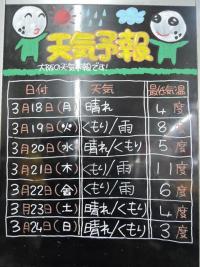 天気予報
大阪の天気予報です!
日付 天気 最低気温
3月18日(月) 晴れ 4度
3月19日(火) くもり/雨 8度
3月20日(水) 晴れ/くもり 5度
3月21日(木) くもり/雨 11度
3月22日(金) くもり/雨 6度
3月23日(土) 晴れ/くもり 4度
3月24日(日) 晴れ/くもり 3度